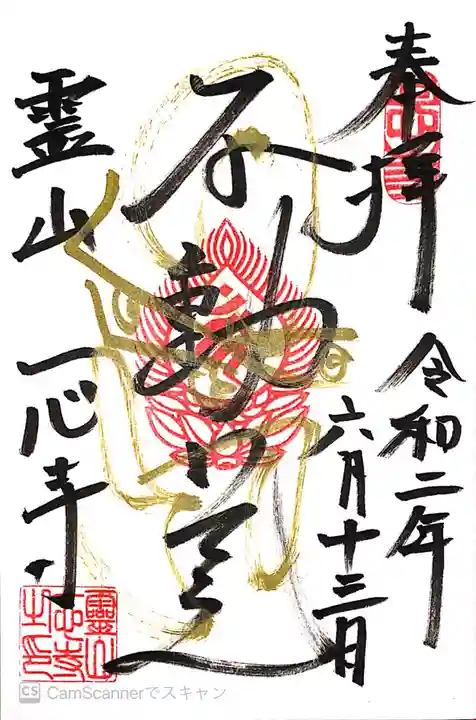 奉拝
令和二年
六月十三日
不動明王
霊山一心寺
CS CamScannerでスキャン